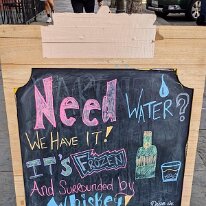 Need
WATER?
WE HAVE IT!
IT'S FROZEN
And Surrounded by
Whiskey!